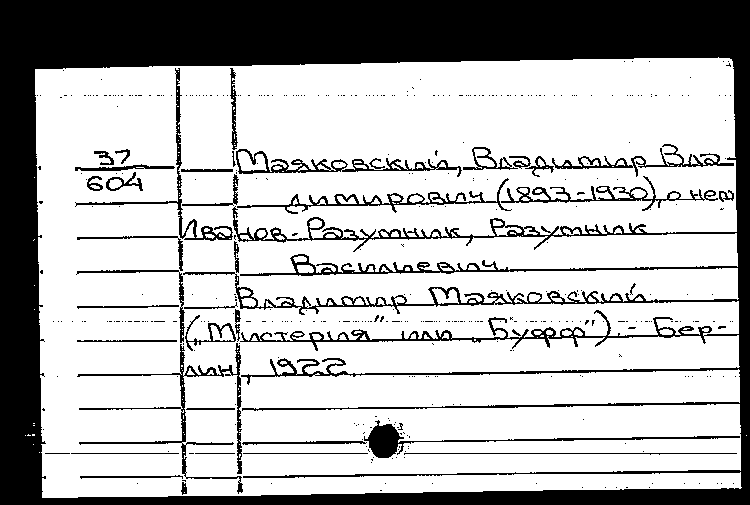 37
604
Маяковский, Владимир Вла-
димирович (1893-1930), о нем
Иванов-Разумник, Разумник
Василиевич.
Владимир Маяковский
("Мистерія" или "Буфф"). - Бер-
лин, 1922.